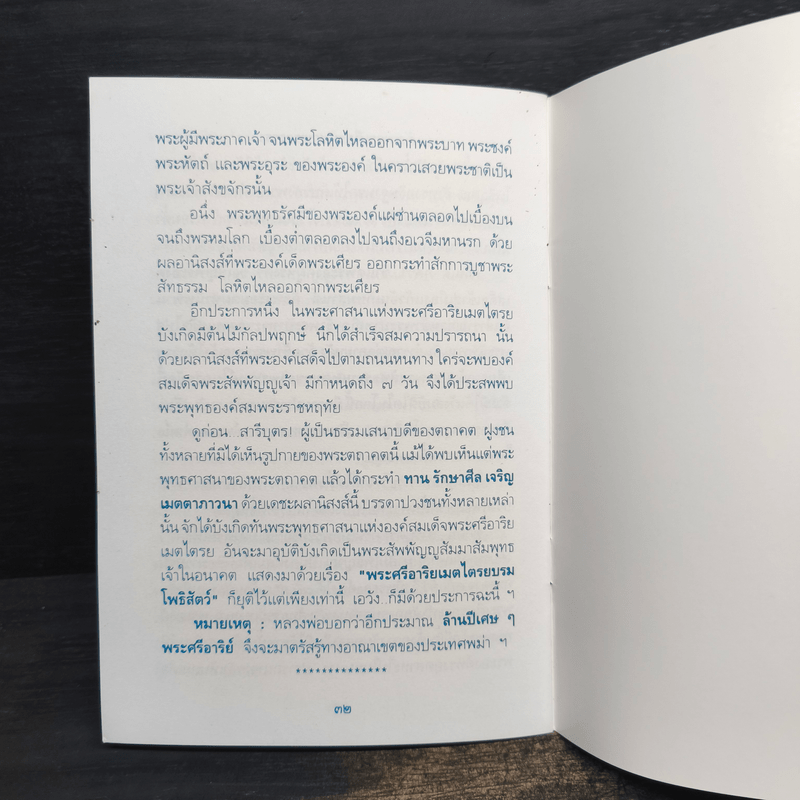 พระผู้มีพระภาคเจ้า จนพระโลหิตไหลออกจากพระบาท พระชงค์
พระหัตถ์ และพระอุระ ของพระองค์ ในคราวเสวยพระชาติเป็น
พระเจ้าสังขจักรนั้น
อนึ่ง พระพุทธรัศมีของพระองค์แผ่ซ่านตลอดไปเบื้องบน
จนถึงพรหมโลก เบื้องต่ำตลอดลงไปจนถึงอเวจีมหานรก ด้วย
ผลอานิสงส์ที่พระองค์เด็ดพระเศียร ออกกระทำสักการบูชาพระ
สัทธรรม โลหิตไหลออกจากพระเศียร
อีกประการหนึ่ง ในพระศาสนาแห่งพระศรีอาริยเมตไตรย
บังเกิดมีต้นไม้กัลปพฤกษ์ นึกได้สำเร็จสมความปรารถนา นั้น
ด้วยผลานิสงส์ที่พระองค์เสด็จไปตามถนนหนทาง ใคร่จะพบองค์
สมเด็จพระสัพพัญญูเจ้า มีกำหนดถึง ๗ วัน จึงได้ประสพพบ
พระพุทธองค์สมพระราชหฤทัย
ดูก่อน สารีบุตร! ผู้เป็นธรรมเสนาบดีของตถาคต ฝูงชน
ทั้งหลายที่มิได้เห็นรูปกายของพระตถาคตนี้ แม้ได้พบเห็นแต่พระ
พุทธศาสนาของพระตถาคต แล้วได้กระทำ ทาน รักษาศีล เจริญ
เมตตาภาวนา ด้วยเดชะผลานิสงส์นี้ บรรดาปวงชนทั้งหลายเหล่า
นั้น จักได้บังเกิดทันพระพุทธศาสนาแห่งองค์สมเด็จพระศรีอาริย
เมตไตรย อันจะมาอุบัติบังเกิดเป็นพระสัพพัญญูสัมมาสัมพุทธ
เจ้าในอนาคต แสดงมาด้วยเรื่อง "พระศรีอาริยเมตไตรยบรม
โพธิสัตว์" ก็ยุติไว้แต่เพียงเท่านี้ เอวัง ก็มีด้วยประการฉะนี้ ฯ
หมายเหตุ : หลวงพ่อบอกว่าอีกประมาณ ล้านปีเศษ ๆ
พระศรีอาริย์ จึงจะมาตรัสรู้ทางอาณาเขตของประเทศพม่า ฯ
**************
๓๒